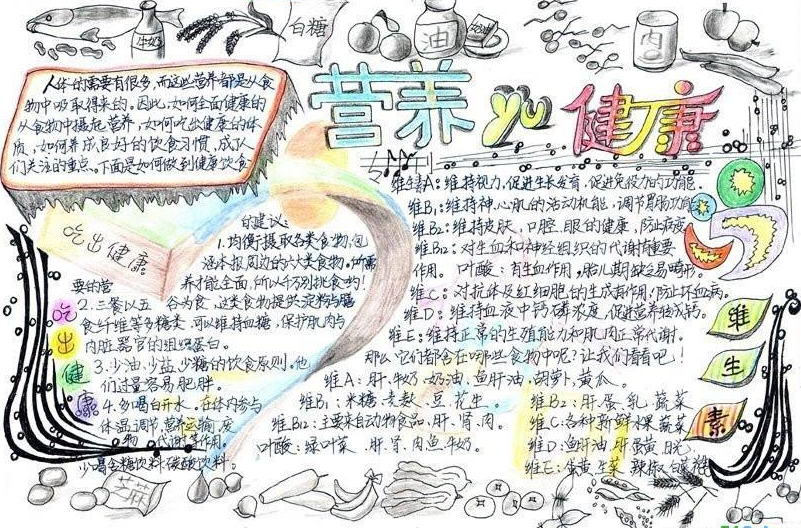 牛奶
白糖
油
肉
营养 yu 健康
人体的需要有很多,而这些营养都是从食
物中吸取得来的。因此,如何全面健康的
从食物中摄起营养,如何吃出健康的体
质,如何养成良好的饮食习惯,成了人
们关注的重点。下面是如何做到健康饮食
的建议:
吃出健康
1.均衡摄取各类食物,包
涵木报周边的六大类食物。所需
要的营
养才能全面,所以千万别挑食物!
2.三餐以五谷为食,这类食物提供淀粉与膳
食纤维等多糖类,可以维持血糖,保护肌肉与
内脏器官的组织蛋白。
3.少油,少盐,少糖的饮食原则。他
们过量容易肥胖。
4.多喝白开水,在体内参与
体温调节,营养运输,废
物代谢等作用。
少喝含糖饮料,碳酸饮料。
吃出健康
维生素A:维持视力,促进生长发育,促进免疫力的功能。
维B₁:维持神、心肌的活动机能,调节胃肠功能
维B₂:维持皮肤,口腔,眼的健康,防止病变
维B₁₂:对生血和神经组织的代谢有重要
作用。叶酸:有生血作用,胎儿期缺会畸形。
维C:对抗体及红细胞的生成有作用,防止坏血病。
维D:维持血液中钙磷浓度,促进营养德成钙。
维E:维持正常的生殖能力和肌肉正常代谢。
那么,它们都含在哪些食物中呢?让我们看看吧!
维A:肝、牛奶、奶油、鱼肝油、胡萝卜、黄瓜。
维B₁:米糠、麦麸、豆、花生。 维B₂:肝、蛋、乳、蔬菜
维B₁₂:主要来自动物食品,肝、肾、肉。 维C:各种新鲜水果、蔬菜
叶酸:绿叶菜、肝、肾、肉鱼、牛奶。 维D:鱼肝油、肝、蛋黄、
维E:蛋黄、生菜、辣椒、
维
生
素
芝麻